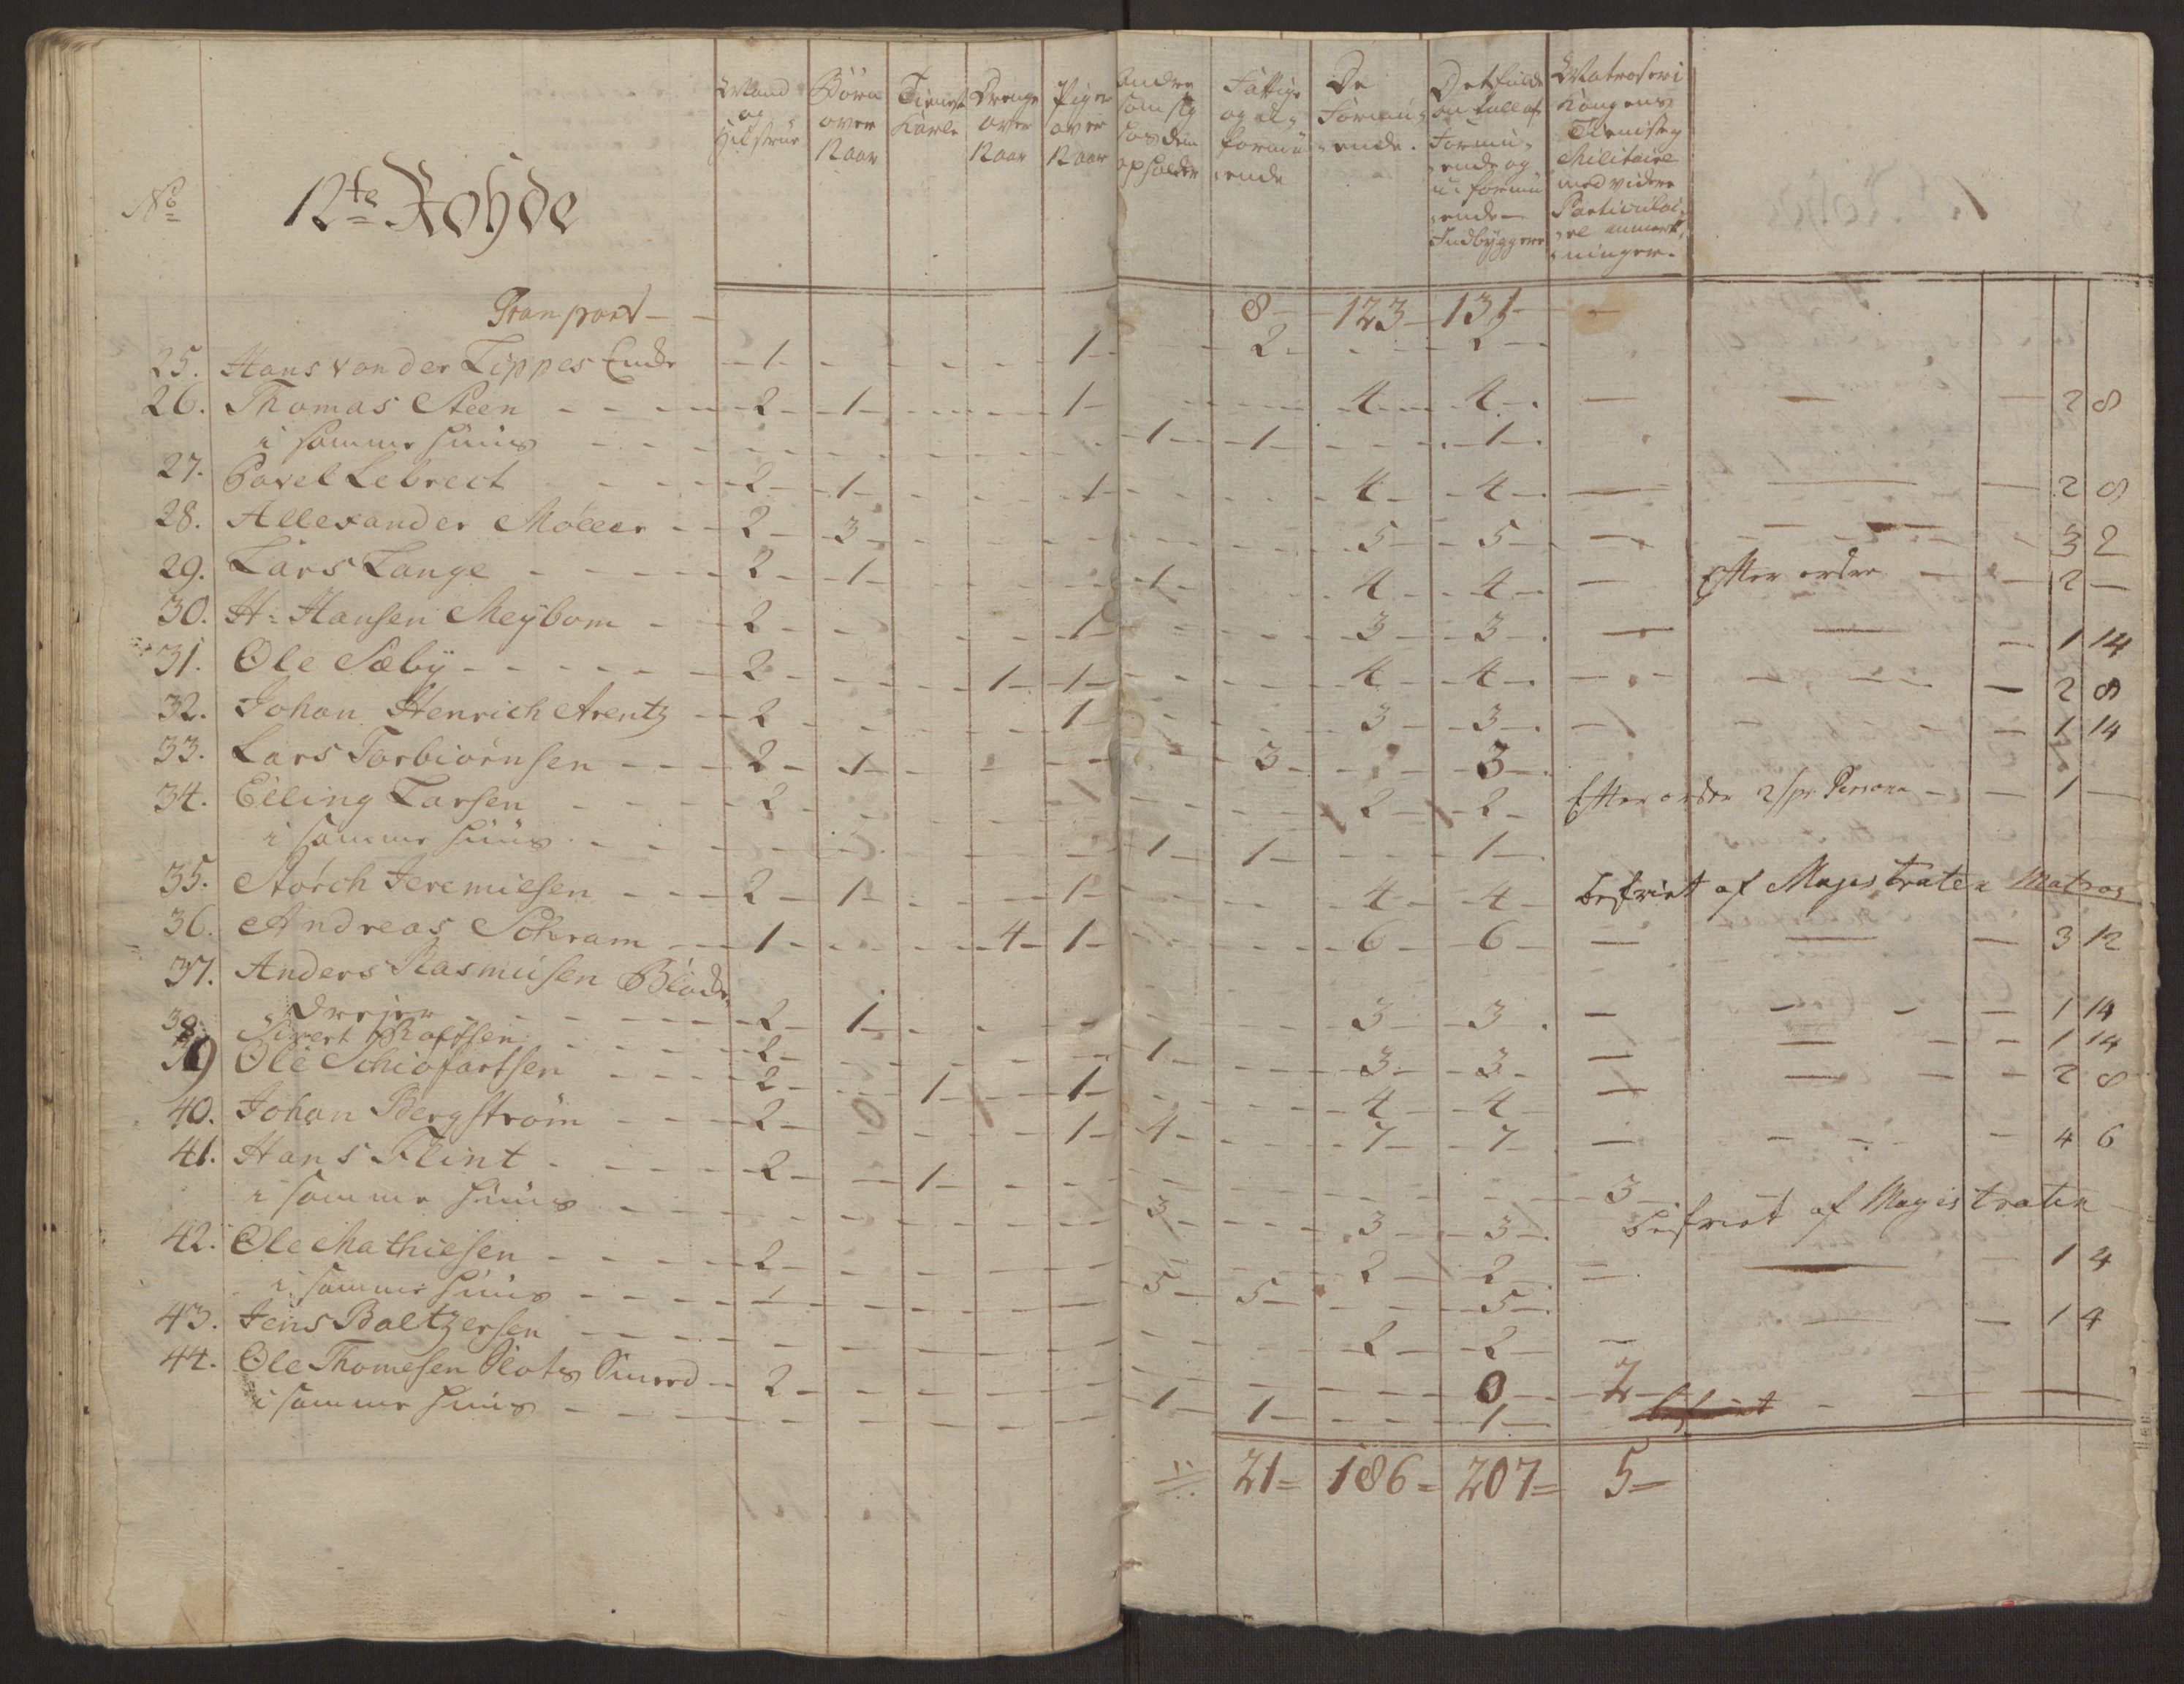 No 12te Rohde
Mand og Hustrue
Börn over 12 aar
Tienest Karle
Drenge over 12 aar
Piger over 12 aar
Andre som sig hos dem opholder
Fattige og uformuende
De Formuende.
Det fulde antall af Formuende og uformuende Indbyggere
Matroser i Kongens Tieniste, Militaire med videre Particulaire anmerkninger.
Transport - - 8 - 123 - 131 - -
25. Hans von der Lippes Encke - 1 - - - - 1 - - 2 - - - 2 -
26. Thomas Steen - - - 2 - 1 - - - 1 - - - 4 - 4 - — — — 2 8
i samme Huus - - - - 1 - 1 - - - 1 -
27. Pavel Lebrect - - - 2 - 1 - - - 1 - - - 4 - 4 - — — — 2 8
28. Allexander Möller - - 2 - 3 - - - - - 5 - 5 - — — 3 2
29. Lars Lange - - - 2 - 1 - - - 1 - - 4 - 4 - — Efter ordre - - 2 —
30. H: Hansen Meybom - - 2 - - - - 1 - - - 3 - 3 - — — — 1 14
31. Ole Sæby - - - - 2 - - - 1 - 1 - - - 4 - 4 - - - - — 2 8
32. Johan Henrich Arentz - 2 - - - - 1 - - - 3 - 3 - - - - 1 14
33. Lars Torbiörnsen - - - 2 - 1 - - - - - 3 - - - 3 -
34. Elling Larsen - - - 2 - - - - - - 2 - 2 - Efter ordre 2 s pr Persone - - 1 —
i samme Huus - - - - - 1 - 1 - - - 1 -
35. Störch Jeremiesen - - - 2 - 1 - - - 1 - - - 4 - 4 - befriet af Magistraten Matros
36. Andreas Schram - - 1 - - - 4 - 1 - - - 6 - 6 - — — — 3 12
37. Anders Rasmusen Blode,
Dreier - - - 2 - 1 - - - - - 3 - 3 - — — - — 1 14
38. Sivert Rolfsen - - - 2 - - - - - 1 - - 3 - 3 - — — - - 1 14
39 Ole Schiöfartsen - - - 2 - - 1 - - 1 - - - 4 - 4 - — — - - 2 8
40. Johan Bergström - - - 2 - - - - 1 - 4 - - 7 - 7 - — - - - 4 6
41. Hans Flint - - - 2 - - 1 - - - - - - - 3 -
i samme Huus - - - - - 3 - - - 3 - 3 - befriet af Magistraten
42. Ole Mathiesen - - - 2 - - - - - - 2 - 2 - — — - 1 4
i samme Huus - - - - - 5 - 5 - - - 5 -
43. Jens Baltzersen - - - - - - - - 2 - 2 - — — — 1 4
44. Ole Thomesen Slots Smed - 2 - - - - - - - - 0 - - 2 -
i samme Huus - - - - - 1 - 1 - - - 1 - befriet - — —
21 = 186 = 207 = 5 =